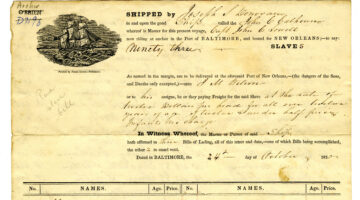 Archer
O'BRIEN
SHIPPED by Joseph S. Donovan
and upon the good Ship called the John C Calhoun
whereof is Master for this present voyage, Capt John C
now riding at anchor in the Port of BALTIMORE, and bound for NEW ORLEANS; to say
Ninety three SLAVES
As noted in the margin, are to be delivered at the aforesaid Port of New Orleans, (the dangers of the Seas,
and Deaths only excepted,) unto
or to his assigns, he or they paying Freight for the said Slaves at the rate of
Twelve Dollars per head for all over twelve
years of age, & twelve & under half price,
Infants no charge
In Witness Whereof, the Master or Purser of said Ship
hath affirmed three Bills of Lading, all of this tenor and date, one of which Bills being accomplished,
the other 2 to stand void.
Dated in BALTIMORE, the 24th day of October 184
No. NAMES. Age. Price. No. NAMES. Age. Price. No. NAMES. Age. Price.